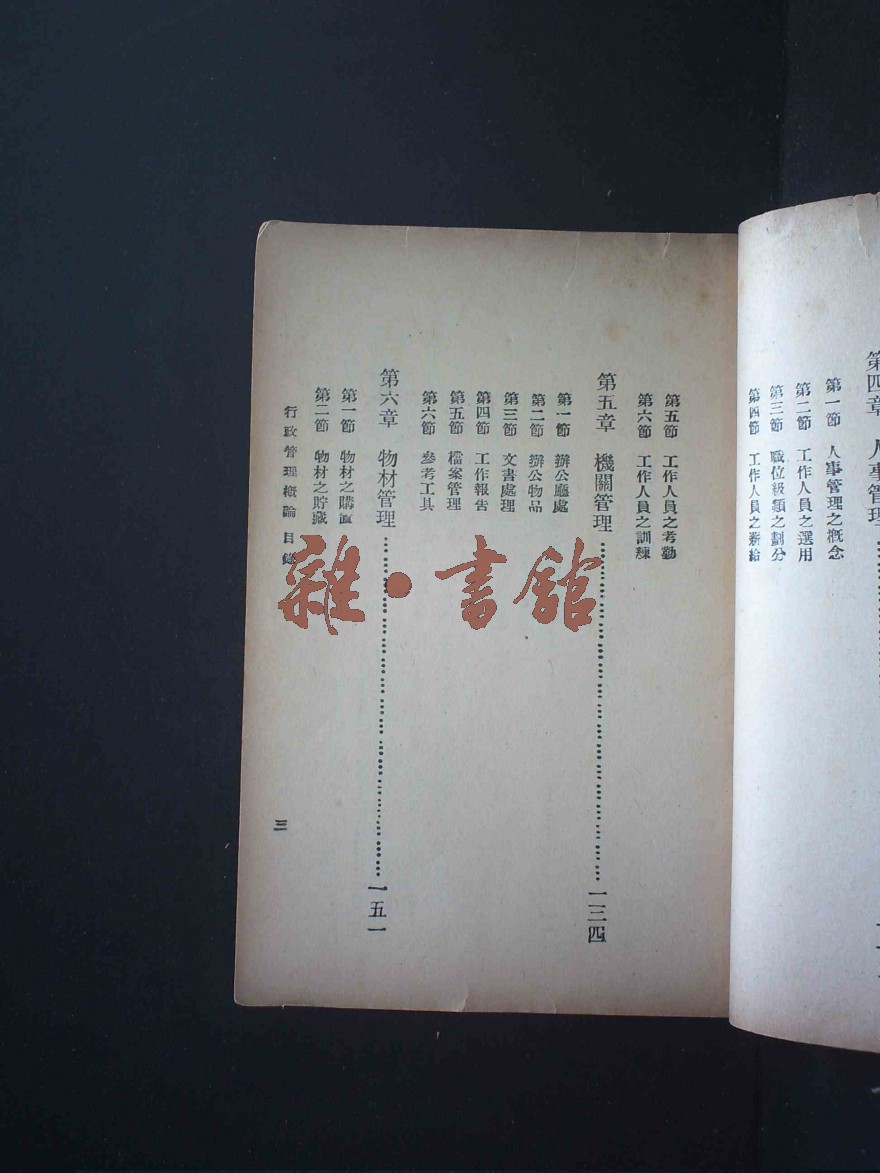 第四章 人事管理
第一節 人事管理之概念
第二節 工作人員之選用
第三節 職位級類之劃分
第四節 工作人員之薪給
第五節 工作人員之考勤
第六節 工作人員之訓練
第五章 機關管理……一三四
第一節 辦公廳處
第二節 辦公物品
第三節 文書處理
第四節 工作報告
第五節 檔案管理
第六節 參考工具
第六章 物材管理……一五一
第一節 物材之購置
第二節 物材之貯藏
行政管理概論 目錄
三
雜·書館